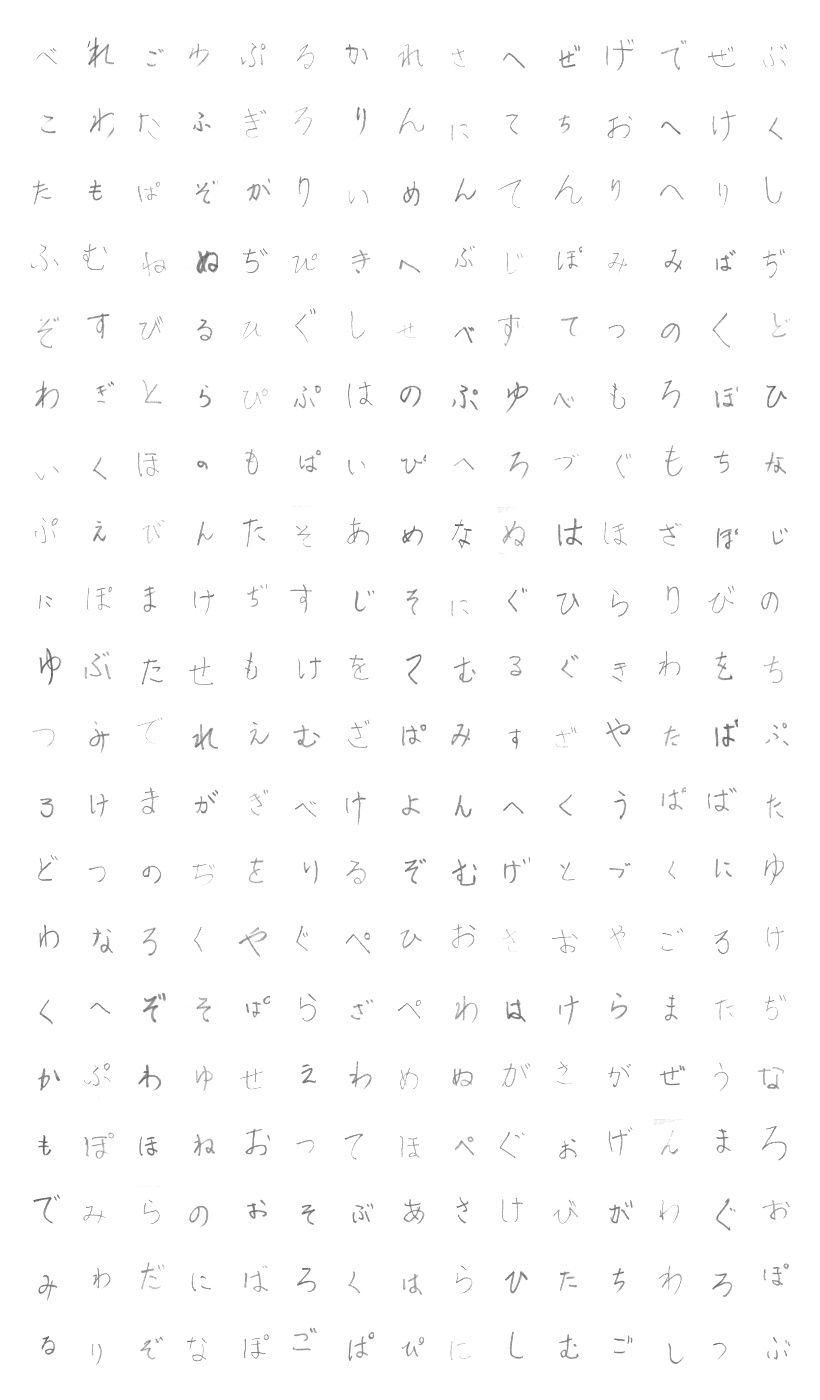 べれごゆぷるかれさへぜげでぜぶ
こわたふぎろりんにてちおへけく
たもぱぞがりいめんてんりへりし
ふむねぬぢぴきへぶじぽみみばぢ
ぞすびるひぐしせべずてつのくど
わぎとらぴぷはのぷゆべもろぼひ
いくほのもぱいびへろづぐもちな
ぷえびんたそあめなぬはほざぽじ
にぽまけぢすじそにぐひらりびの
ゆぶたせもけをてむるぐきわをち
つみでれえむざぱみすざやたばぷ
ろけまがぎべけよんへくうぱばた
どつのぢをりるぞむげとづくにゆ
わなろくやぐぺひおさおやごろけ
くへぞそぱらざぺわはけらまたぢ
かぷわゆせえわめぬがさがぜうな
もぽほねおつてほぺぐおげんまろ
でみらのおそぶあさけびがわぐお
みわだにばろくはらひたちわろぽ
るりぞなぽごぱぴにしむごしつぶ